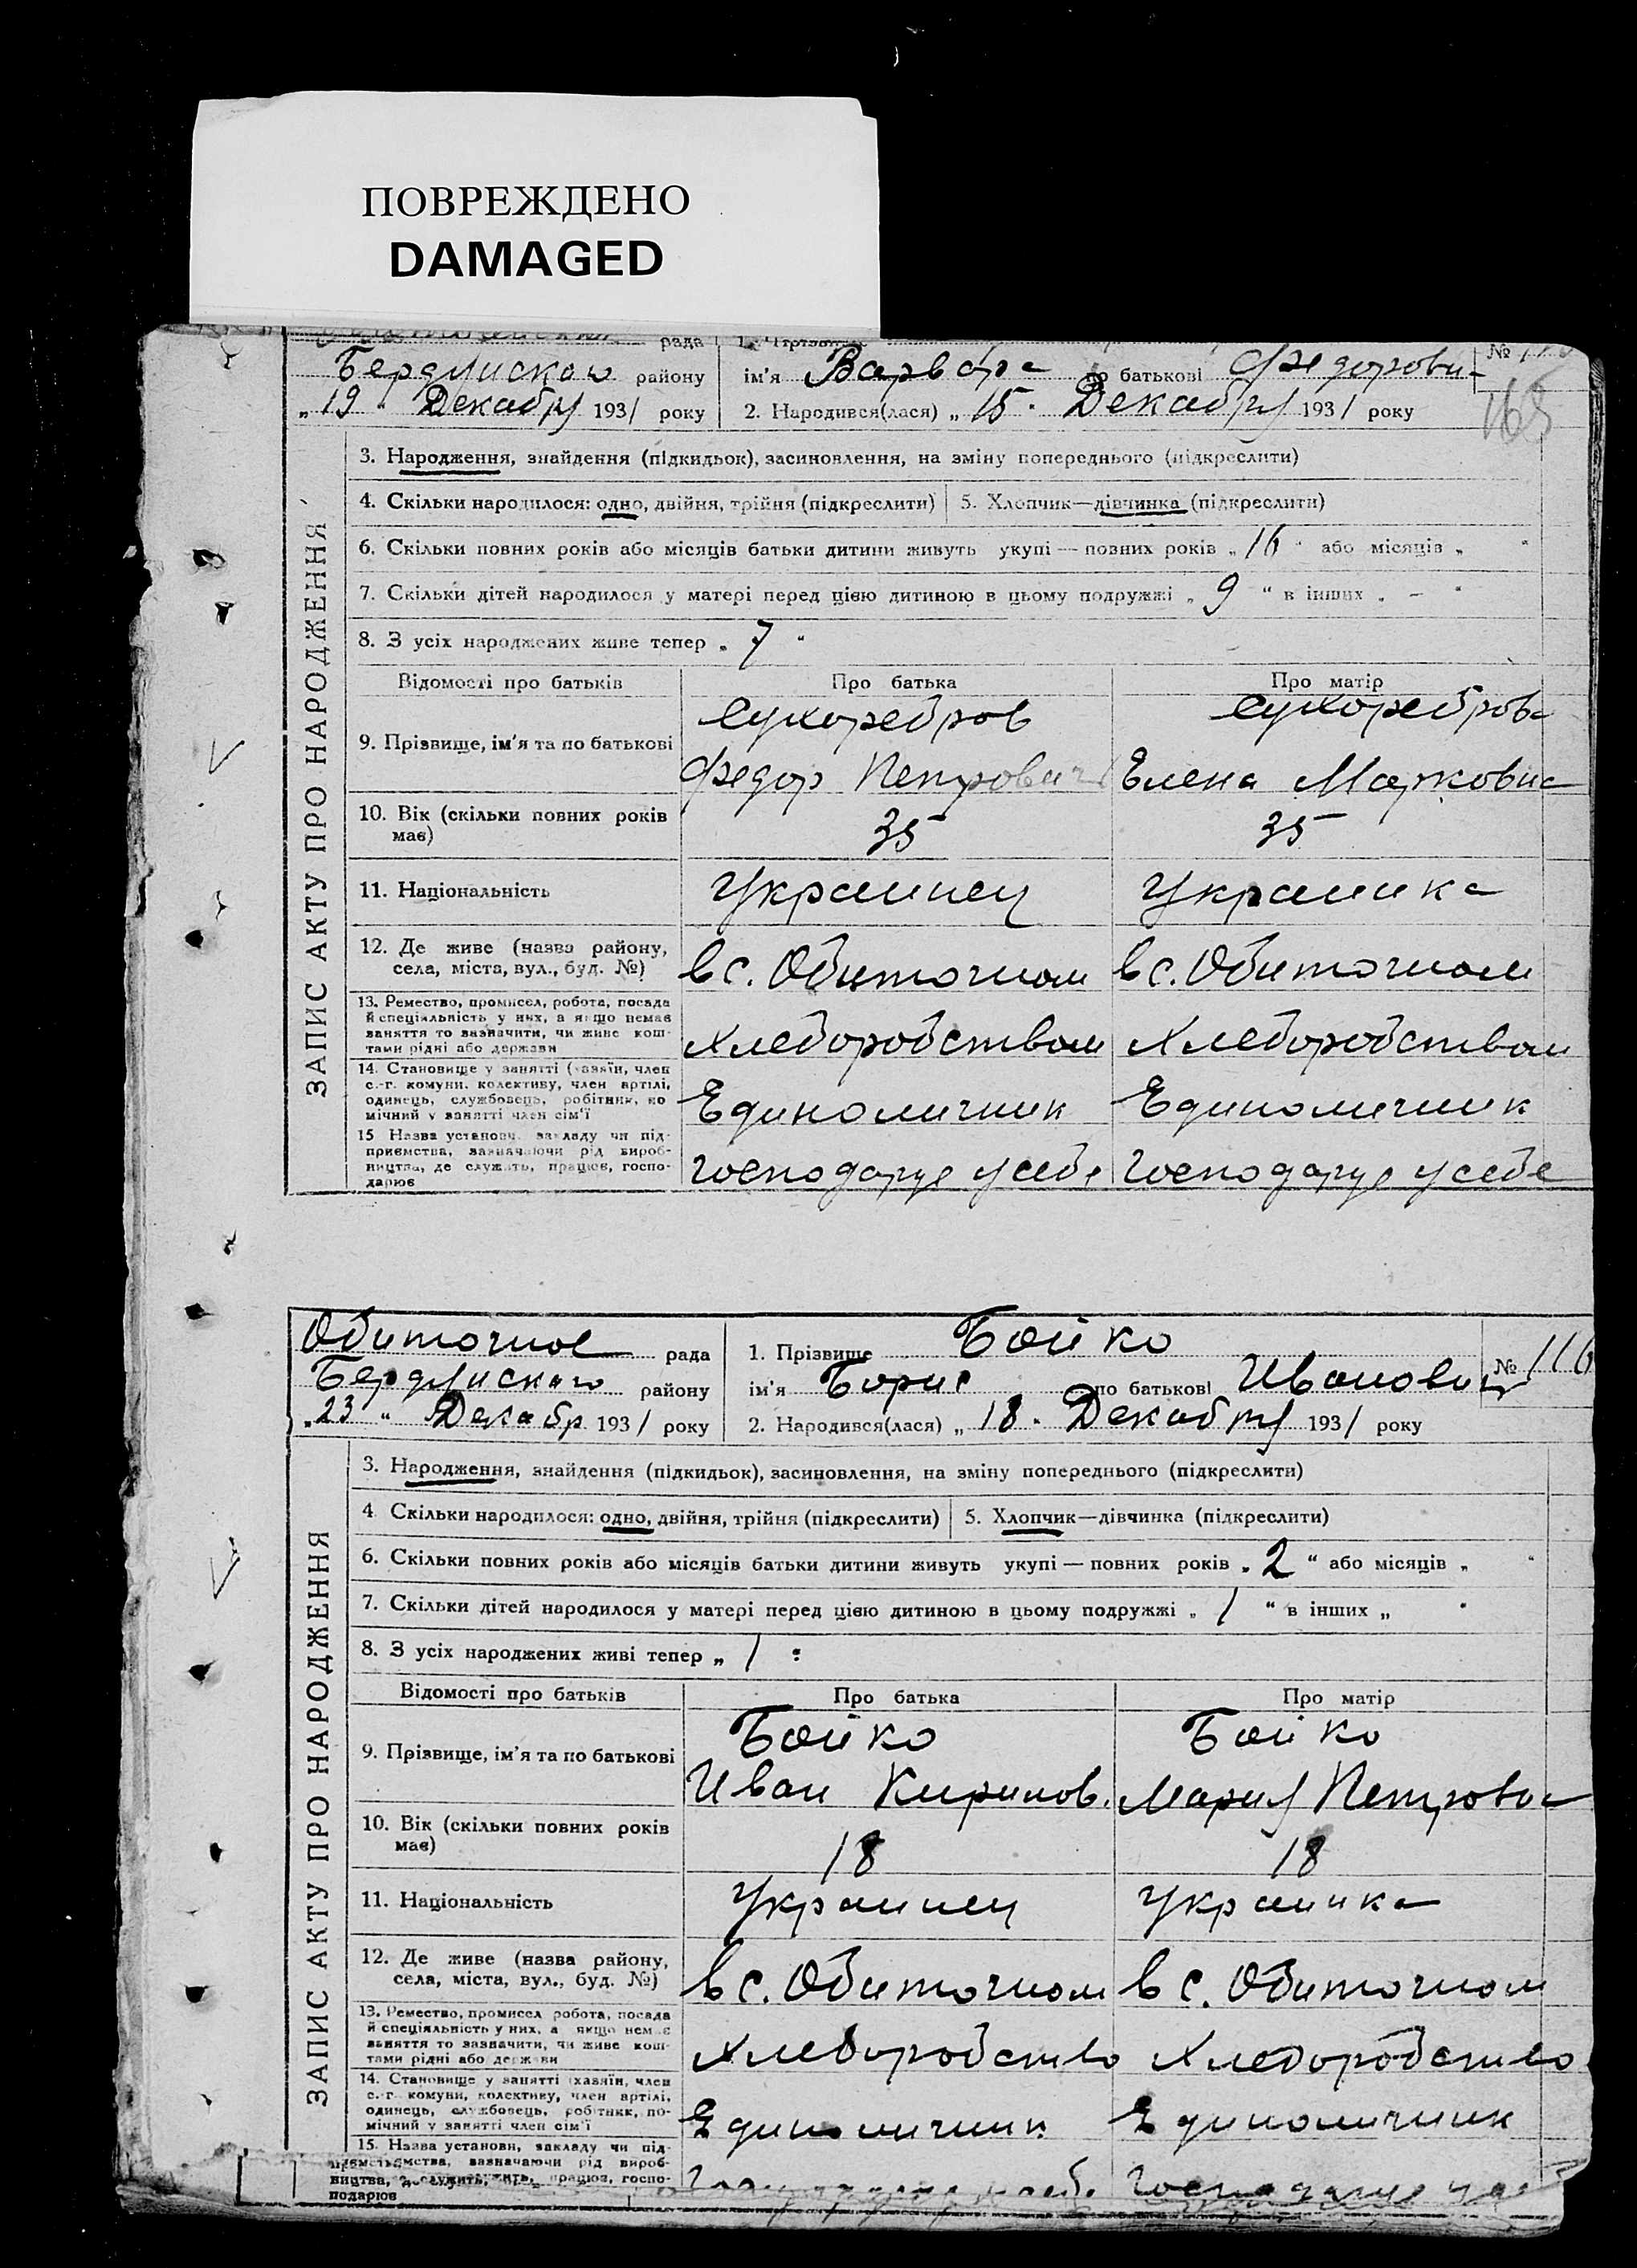 ПОВРЕЖДЕНО
DAMAGED
рада
Бердянского району ім'я Варвара по батькові Федоровн- №
„19“ Декабря 1931 року 2. Народився(лася) „15“ Декабря 1931 року
ЗАПИС АКТУ ПРО НАРОДЖЕННЯ
3. Народження, знайдення (підкидьок), засиновлення, на зміну попереднього (підкреслити)
4. Скільки народилося: одно, двійня, трійня (підкреслити) 5. Хлопчик—дівчинка (підкреслити)
6. Скільки повних років або місяців батьки дитини живуть укупі — повних років „16“ або місяців „ “
7. Скільки дітей народилося у матері перед цією дитиною в цьому подружжі „9“ в інших „-“
8. З усіх народжених живе тепер „7“
Відомості про батьків Про батька Про матір
Сухоребров Сухореброва
9. Прізвище, ім'я та по батькові
Федор Петрович Елена Марковна
10. Вік (скільки повних років 35 35
має)
11. Національність Украинец Украинка
12. Де живе (назва району,
села, міста, вул., буд. №) в с. Обиточном в с. Обиточном
13. Ремество, промисел, робота, посада
й спеціяльність у них, а якщо немає
заняття то зазначити, чи живе кош-
тами рідні або держави Хлеборобством Хлеборобством
14. Становище у занятті (хазяїн, член
с.-г. комуни, колективу, член артілі,
одинець, службовець, робітник, по
мічний у занятті член сім'ї Единоличник Единоличник
15 Назва установи, закладу чи під-
приємства, зазначаючи рід вироб-
ництва, де служить, працює, госпо-
дарює Господарує у себе Господарує у себе
Обиточное рада 1. Прізвище Бойко
Бердянского району ім'я Борис по батькові Иванович № 116
„23“ Декабр 1931 року 2. Народився(лася) „18“ Декабря 1931 року
ЗАПИС АКТУ ПРО НАРОДЖЕННЯ
3. Народження, знайдення (підкидьок), засиновлення, на зміну попереднього (підкреслити)
4 Скільки народилося: одно, двійня, трійня (підкреслити) 5. Хлопчик—дівчинка (підкреслити)
6. Скільки повних років або місяців батьки дитини живуть укупі — повних років „2“ або місяців „ “
7. Скільки дітей народилося у матері перед цією дитиною в цьому подружжі „1“ в інших „ “
8. З усіх народжених живі тепер „1“
Відомості про батьків Про батька Про матір
Бойко Бойко
9. Прізвище, ім'я та по батькові
Иван Кирилов. Мария Петровна
10. Вік (скільки повних років
має) 18 18
11. Національність Украинец Украинка
12. Де живе (назва району,
села, міста, вул., буд. №) в с. Обиточном в с. Обиточном
13. Ремество, промисел робота, посада
й спеціяльність у них, а якщо немає
заняття то зазначити, чи живе кош-
тами рідні або держави Хлеборобство Хлеборобство
14. Становище у занятті (хазяїн, член
с.-г. комуни, колективу, член артілі,
одинець, службовець, робітник, по-
мічний у занятті член сім'ї Единоличник Единоличник
15. Назва установи, закладу чи під-
зазначаючи рід вироб-
ництва, працює, госпо-
подарює Господарує